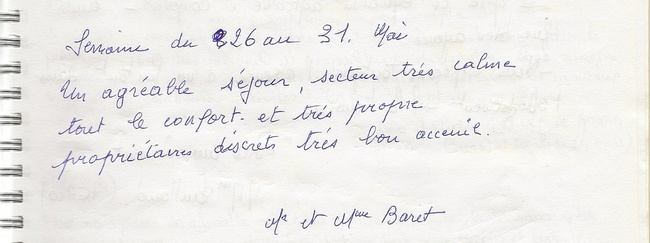 Semaine du 26 au 31. Mai
Un agréable séjour, secteur trés calme
tout le confort. et trés propre
propriétaires discrets trés bon acceuil.
Mr et Mme Baret